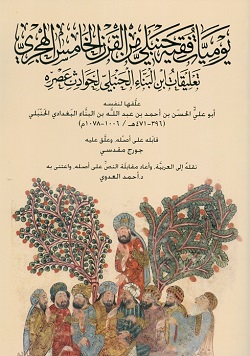 يوميات فقيه حنبلي من القرن الخامس الهجري
تعليقات ابن البناء الحنبلي لحوادث عصره
علقها لنفسه
أبو علي الحسن بن أحمد بن عبد الله بن البناء البغدادي الحنبلي
(٣٩٦-٤٧١هـ / ١٠٠٦-١٠٧٨م)
قابله على أصله، وعلق عليه
جورج مقدسي
نقله إلى العربية، وأعاد مقابلة النص على أصله، واعتنى به
د.أحمد العدوي